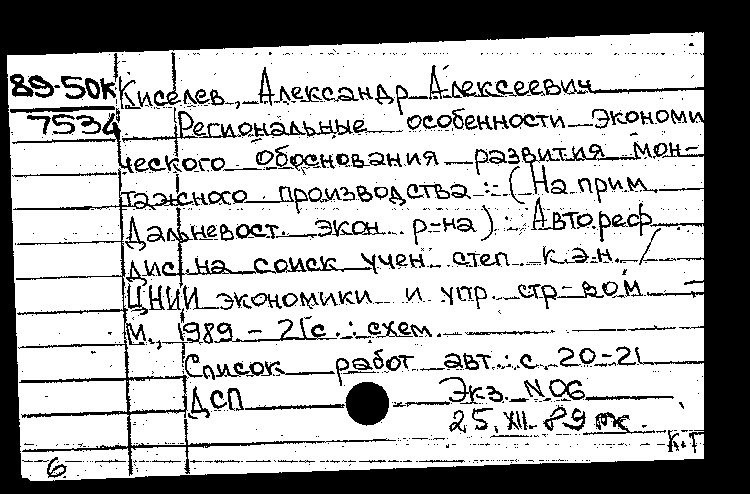 89-50к Киселев, Александр Алексеевич
7534 Региональные особенности экономи
ческого обоснования развития мон-
тажного производства : (На прим.
Дальневост. экон. р-на) : Автореф.
дис. на соиск. учен. степ. к.э.н. /
ЦНИИ экономики и упр. стр-вом. -
М., 1989. - 21с. : схем.
Список работ авт.: с. 20-21
ДСП Экз. N06
25.XII.89
К.Т
6